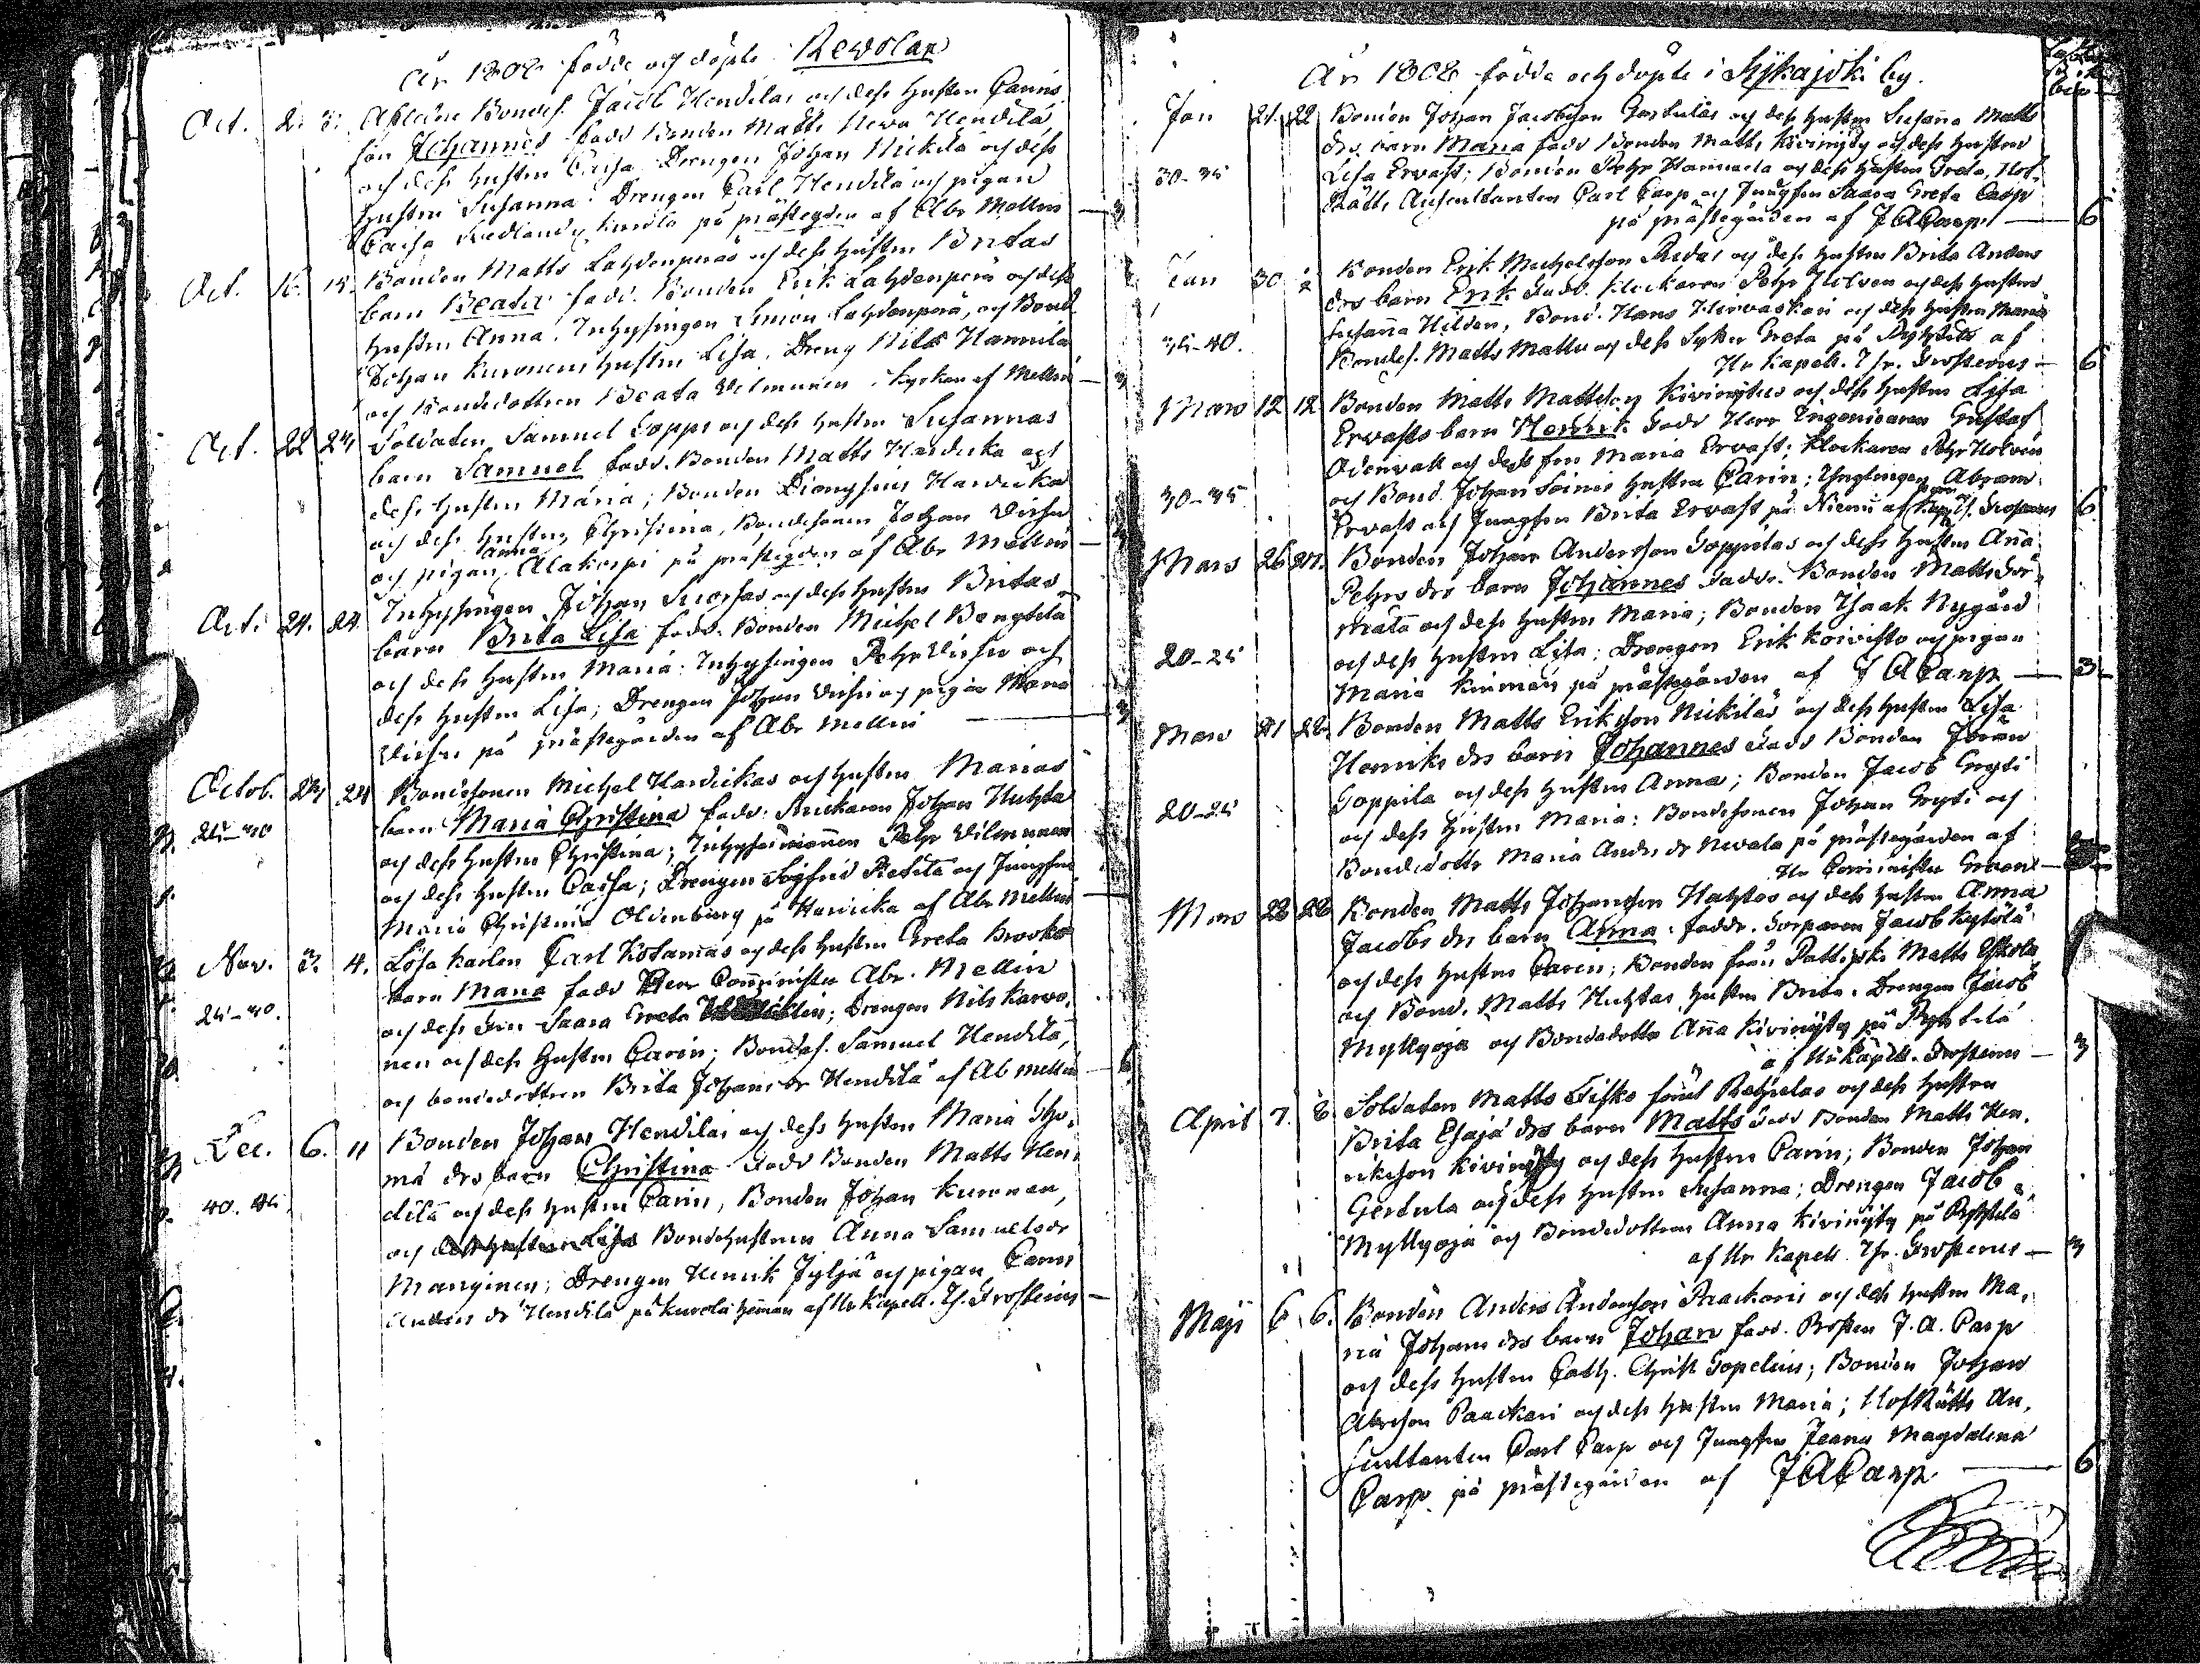 År 1808 födde och döpte Rewolax
Oct. 2. 3. Afledne Bondes. Jacob Hendilas och dess hustru Carins
son Johannes fadd Bonden Matts Neva Hendilä
och dess hustru Caisa Drengen Johan Nickilä och dess
hustru Susanna. Drengen Carl Hendilä och pigan
Caisa på prästegden af Abr Mellin — 3
Oct. 16. 18. Bonden Matts Lahdenperäs och dess hustru Britas
barn Beata fadd. Bonden Erik Lahdenperä och dess
hustru Anna, Inhysingen Simon Lahdenperä, och Bond.
Johan Kuronens hustru Lisa, Dreng Nils Hannila
och Bondedottren Beata Vilmunen i kyrkan af Mellin — 3
Oct. 22 24 Soldaten Samuel Lopps och dess hustru Susannas
barn Samuel fadd. Bonden Matts Hardicka och
dess hustru Maria; Bonden Dionysius Hardicka
och dess hustru Christina, Bondesonen Johan Virhu
och pigan Anna Alakorpi på prästegden af Abr Mellin —
Oct. 24. 24 Inhysingen Johan och dess hustru Britas
barn Brita Lisa fadd. Bonden Michel Bengtilä
och dess hustru Maria. Inhysingen Pehr Virhu och
dess hustru Lisa; Drengen Johan Virhu och pigan Maria
Virhu på prästegården af Abr Mellin — 3
Octob. 24 24 Bondesonen Michel Hardickas och hustru Marias
25-30 barn Maria Christina fadd. Johan Huhta
och dess hustru Christina; Pehr Vilmunen
och dess hustru Caisa; Drengen Sigfrid och Jungfru
Maria Christina Oldenburg på Hardicka af Abr Mellin —
Nov. 3. 4. Lösa karlen Carl och dess hustru Greta
barn Maria fadd Herr Comminister Abr. Mellin
25-30. och dess fru Saara Greta; Drengen Nils Karvo,
nen och dess hustru Carin; Bondes. Samuel Hendilä,
och bondedottren Brita Johans dr Hendilä af Ab Mellin — 6
Dec. 6. 11 Bonden Johan Hendiläs och dess hustru Maria Tho,
mä drs barn Christina fadd Bonden Matts Hen,
40. 45 dilä och dess hustru Carin, Bonden Johan Kuronen,
och Bondehustrun Anna Samuelsdr
Manginen; Drengen Henrik Jyljä och pigan Carin
Anders dr Hendilä på Kurola heman af Hr Kapell. Th. Frosterus —
År 1808 födda och döpte i Sijkajoki by.
Jan 21. 22 Bonden Johan Jacobsson Gertulas och dess hustru Susanna Matts
drs barn Maria fadd Bonden Matts Kiviniity och dess hustru
30-35 Lisa Ervast; Bonden Pehr Hannula och dess hustru Greta, Hof-
Rätts Auscultanten Carl Carp och Jungfru Saara Greta Carp
på prästegården af J A Carp — 6
Jan 30 2 Bonden Erik Michelsson och dess hustru Brita Anders
drs barn Erik fadd. Klockaren Pehr Holven och dess hustru
Susanna Hilden, Bond. Hans Hirvaskari och dess hustru Maria
35-40. Bondes. Matts Mattu och dess syster Greta på af
Hr Kapell. Thr. Frosterus — 6
Mars 12 12 Bonden Matts Mattsson Kiviniitus och dess hustru Lisa
Ervasts barn Henrik fadd Herr Ingenieuren Gustaf
Odenvall och dess fru Maria Ervast; Klockaren Pehr Holvén
30-35 och Bond Johan Soinis hustru Carin; Ynglingen Abram
Ervast och Jungfru Brita Ervast på Niemi af Kapp. Th. Frosterus 6
Mars 26 27. Bonden Johan Andersson Soppilas och dess hustru Anna
Pehrs drs barn Johannes fadd. Bonden Matts
och dess hustru Maria; Bonden Isaak Nygård
20-25 och dess hustru Lisa; Drengen Erik Koivisto och pigan
Maria Kinman på prästegården af J A Carp — 3
Mars 21 22 Bonden Matts Eriksson Nickiläs och dess hustru Lisa
Henriks drs barn Johannes fadd Bonden Jöran
Soppila och dess hustru Anna; Bonden Jacob Gryti
20-25 och dess hustru Maria; Bondesonen Johan Gryti och
Bondedottr Maria Anders dr Nevala på prästegården af
Hr Comminister —
Mars 28 28 Bonden Matts Johansson Huhtas och dess hustru Anna
Jacobs drs barn Anna. fadd. Torparen Jacob Kestilä
och dess hustru Carin; Bonden från Pattijoki Matts Eskola
och Bond. Matts Huhtas hustru Brita. Drengen Jacob
Myllyoja och Bondedottr Anna Kiviniity på
af Hr Kapell. Frosterus — 3
April 7. 8 Soldaten Matts Fisks förut och dess hustru
Brita Esajä drs barn Matts fadd Bonden Matts Hen,
riksson Kiviniity och dess hustru Carin; Bonden Johan
Gertula och dess hustru Susanna; Drengen Jacob
Myllyoja och Bondedottren Anna Kiviniity på
af Hr Kapell. Thr. Frosterus — 3
Maji 6 6. Bonden Anders Andersson Paackaris och dess hustru Ma,
ria Johans drs barn Johan fadd. Prosten J. A. Carp
och dess hustru Cath. Christ. Topelius; Bonden Johan
Abrson Paackari och dess hustru Maria; HofRätts Au,
scultanten Carl Carp och Jungfru Jeana Magdalena
Carp på prästegården af J A Carp — 6